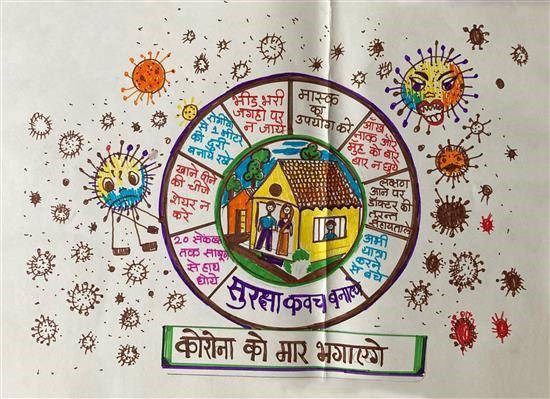 भीड़ भरी
जगहों पर
न जाये
मास्क
का
उपयोग करे
आँख
नाक और
मुँह को बार
बार न छुये
लक्षण
आने पर
डॉक्टर की
तुरन्त
अभी
यात्रा
करने
से बचे
सुरक्षा कवच बनाए
20 सेकंड
तक साबुन
से हाथ
धोये
खाने पीने
की चीजे
शेयर न
करे
की दुरी
बनाये रखे
कोरोना को मार भगाएगे